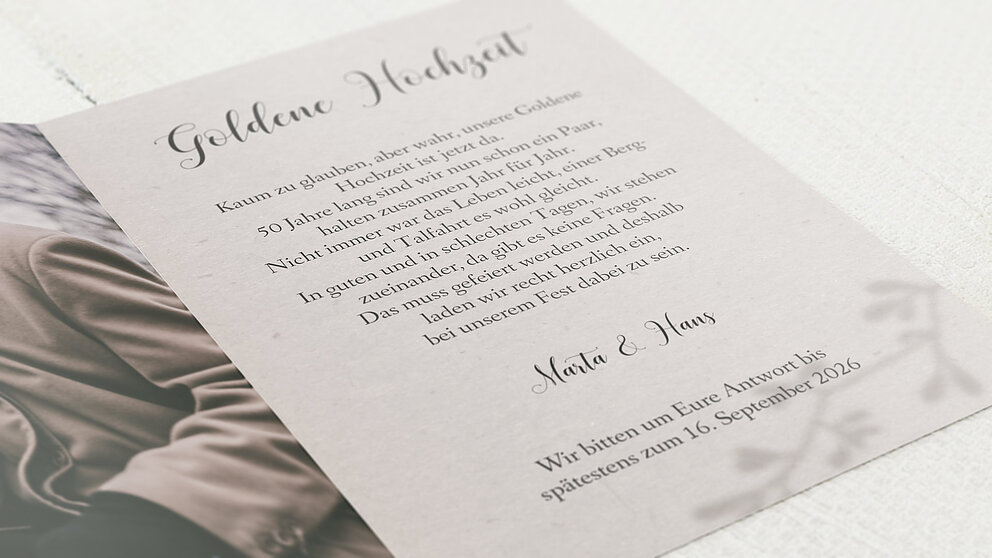 Goldene Hochzeit
Kaum zu glauben, aber wahr, unsere Goldene
Hochzeit ist jetzt da.
50 Jahre lang sind wir nun schon ein Paar,
halten zusammen Jahr für Jahr.
Nicht immer war das Leben leicht, einer Berg-
und Talfahrt es wohl gleicht.
In guten und in schlechten Tagen, wir stehen
zueinander, da gibt es keine Fragen.
Das muss gefeiert werden und deshalb
laden wir recht herzlich ein,
bei unserem Fest dabei zu sein.
Marta & Hans
Wir bitten um Eure Antwort bis
spätestens zum 16. September 2026